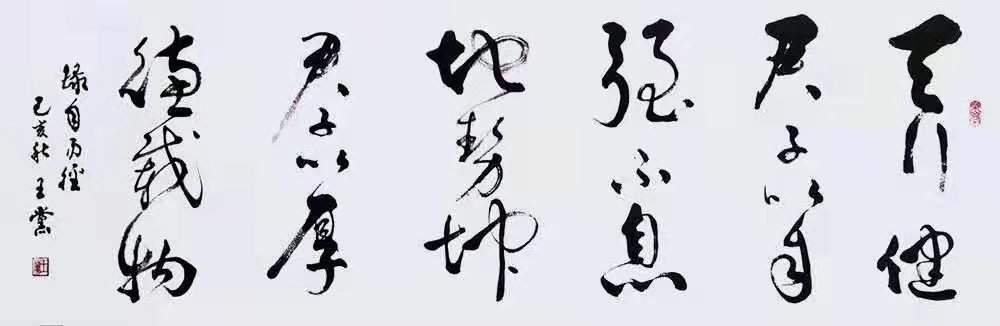 天行健
君子以自
强不息
地勢坤
君子以厚
德載物
録自易經
己亥秋 王